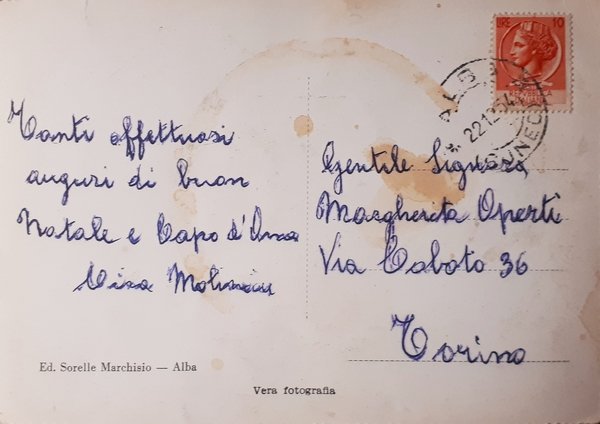 LIRE 10
ALBA
22.12.54
CUNEO
Tanti affettuosi
auguri di buon
Natale e Capo d'Anno
Gentile Signora
Margherita Operti
Via Caboto 36
Torino
Ed. Sorelle Marchisio — Alba
Vera fotografia